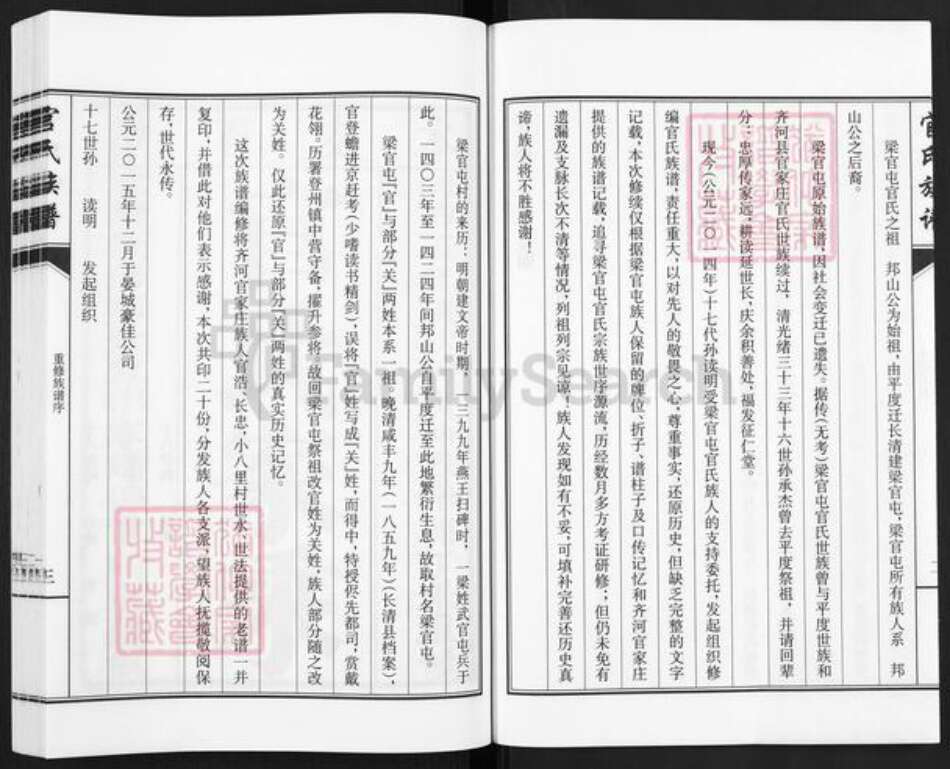 官氏族谱
梁官屯官氏之祖　邦山公为始祖，由平度迁长清建梁官屯，梁官屯所有族人系　邦
山公之后裔。
梁官屯原始族谱，因社会变迁已遗失。据传（无考）梁官屯官氏世族曾与平度世族和
齐河县官家庄官氏世族续过，清光绪三十三年十六世孙承杰曾去平度祭祖，并请回辈
分：忠厚传家远，耕读延世长，庆余积善处，福发征仁堂。
现今（公元二〇一四年）十七代孙读明受梁官屯官氏族人的支持委托，发起组织修
编官氏族谱，责任重大，以对先人的敬畏之心，尊重事实，还原历史，但缺乏完整的文字
记载，本次修续仅根据梁官屯族人保留的牌位、折子、谱柱子及口传记忆和齐河官家庄
提供的族谱记载，追寻梁官屯官氏宗族世序源流，历经数月多方考证研修；但仍未免有
遗漏及支脉长次不清等情况，列祖列宗见谅！族人发现如有不妥，可填补完善还历史真
谛，族人将不胜感谢！
梁官屯村的来历：明朝建文帝时期，一三九九年燕王扫碑时，一梁姓武官屯兵于
此。一四〇三年至一四二四年间邦山公自平度迁至此地繁衍生息，故取村名梁官屯。
梁官屯『官』与部分『关』两姓本系一祖。晚清咸丰九年（一八五九年）（长清县档案），
官登蟾进京赶考（少嗜读书精剑），误将『官』姓写成『关』姓，而得中，特授侭先都司，赏戴
花翎。历署登州镇中营守备，擢升参将，故回梁官屯祭祖改官姓为关姓，族人部分随之改
为关姓。仅此还原『官』与部分『关』两姓的真实历史记忆。
这次族谱编修将齐河官家庄族人官浩、长忠，小八里村世水、世法提供的老谱一并
复印，并借此对他们表示感谢，本次共印二十份，分发族人各支派，望族人抚揽敬阅保
存，世代永传。
公元二〇一五年十二月于晏城豪佳公司
十七世孙　读明　发起组织
重修族谱序
三
官氏族谱
FamilySearch